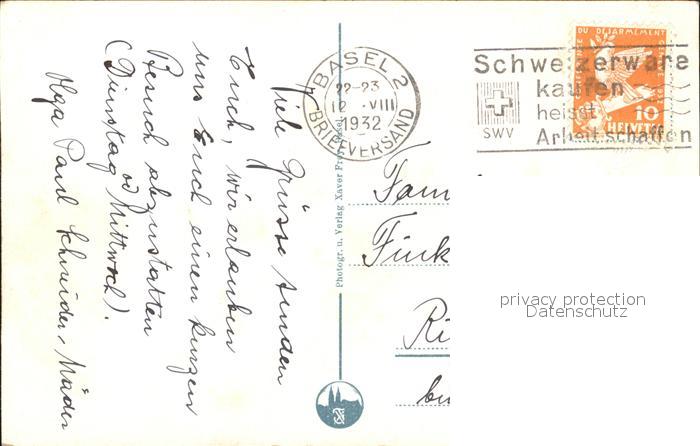 Viele Grüsse senden
Euch, wir erlauben
uns Euch einen kurzen
Besuch abzustatten
(Dienstag od Mittwoch).
Olga Paul Schneider-Mäder
Photogr. u. Verlag Xaver Frey, Basel
BASEL 2
22-23
12. VIII
1932
BRIEFVERSAND
Schweizerware
kaufen
heisst
Arbeit schaffen
SWV
DU DESARMEMENT
10
HELVETIA
Fam
Fünk
Ri
bei
privacy protection
Datenschutz